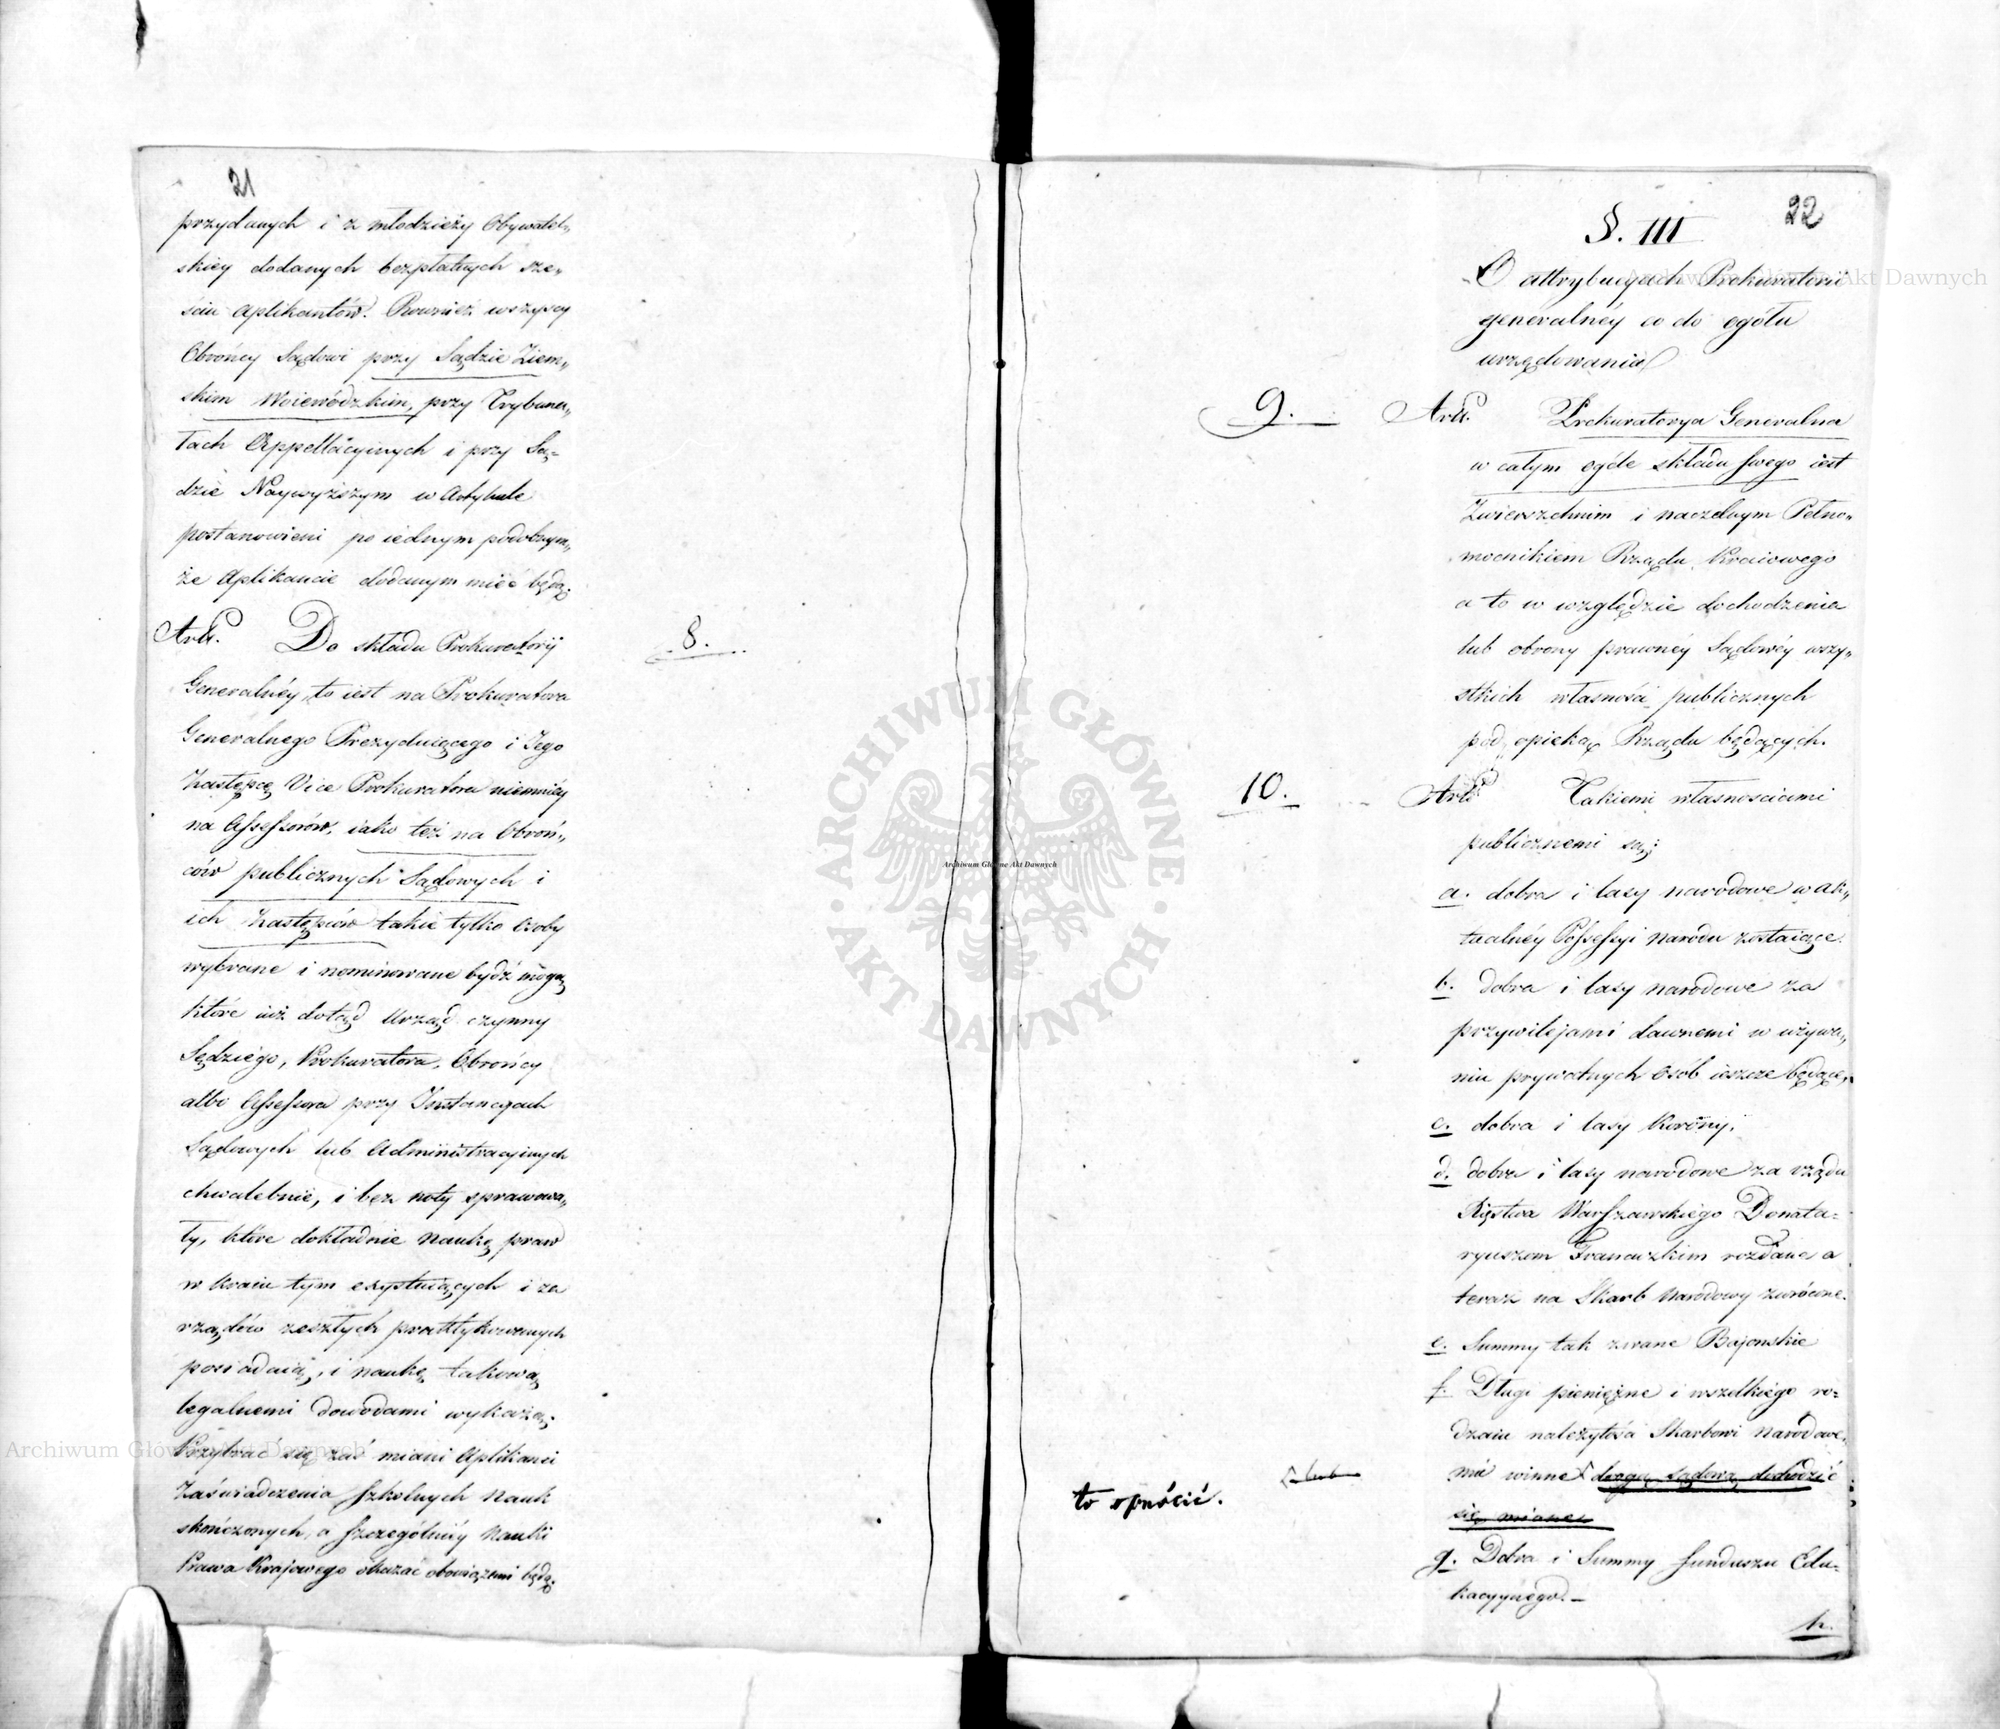 21
przydanych i z młodzieży Obywatel„
skiey dodanych bezpłatnych sze„
ściu Aplikantów. Rownież wszyscy
Obrońcy Sądowi przy Sądzie Ziem„
skim Woiewódzkim, przy Trybuna„
łach Appellacyinych i przy Są=
dzie Naywyższym w Artykule
postanowieni po iednym podobnym„
że Aplikancie dodanym mieć będą.
Artł. 8. Do składu Prokuratorij
Generalnéy, to iest na Prokuratora
Generalnego Prezyduiącego i Jego
Zastępcę Vice Prokuratora niemniéy
na Assessorów, iako też na Obroń„
ców publicznych Sądowych i
ich Zastępców takie tylko Osoby
wybrane i nominowane bydź mogą
które iuż dotąd Urząd czynny
Sędziégo, Prokuratora, Obrońcy
albo Assessora przy Instancyach
Sądowych lub Administracyinych
chwalebnie, i bez noty sprawowa„
ły, które dokładnie Naukę praw
w Kraiu tym exystuiących i za
rządów zeszłych praktykowanych
posiadaią, i naukę takową
legalnemi dowodami wykażą.
Przybrać się zaś miani Aplikanci
Zaświadczenia Szkolnych Nauk
skończonych, a szczególniéy Nauki
Prawa Krajowego okazać obowiązani będą.
22
§. III
O attrybucyach Prokuratorii
generalnéy co do ogółu
urzędowania
9. Artł. Prokuratorya Generalna
w całym ogóle składu swego iest
Zwierzchnim i naczelnym Pełno„
mocnikiem Rządu Kraiowego
a to w względzie dochodzenia
lub obrony prawnéy Sądowéy wszy„
stkich własności publicznych
pod opieką Rządu będących.
10. Artł. Takiemi własnościami
publicznemi są;
a. dobra i lasy narodowe w ak„
tualnéy Possessyi Narodu zostaiące.
b. dobra i lasy Narodowe za
przywilejami dawnemi w używa„
niu prywatnych Osób ieszcze będące,
c. dobra i lasy Korony,
d. dobra i lasy narodowe za rządu
Xięstwa Warszawskiégo Donata=
ryuszom Francuzkim rozdane a
teraz na Skarb Narodowy zwrócone.
e. Summy tak zwane Bajonskie
f. Długi pieniężne i wszelkiégo ro=
dzaiu należytości Skarbowi Narodowe„
mu winne drogą sądową dochodzić
się miane
lub
to opuścić.
g. Dobra i Summy funduszu Edu=
kacyynego. –
h.
Archiwum Główne Akt Dawnych
Archiwum Główne Akt Dawnych
Archiwum Główne Akt Dawnych
ARCHIWUM GŁÓWNE
AKT DAWNYCH